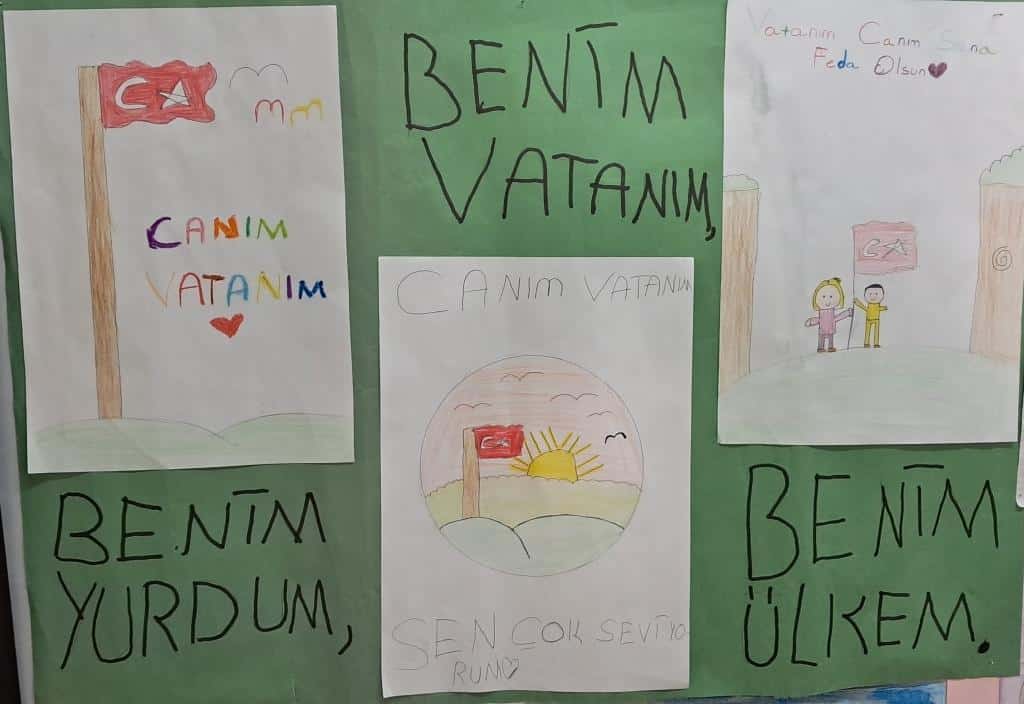 CANIM
VATANIM
BENİM
VATANIM,
Vatanım Canım Sana
Feda Olsun
CANIM VATANIM
SEN ÇOK SEVİYO
RUM
BENİM
YURDUM,
BENİM
ÜLKEM.